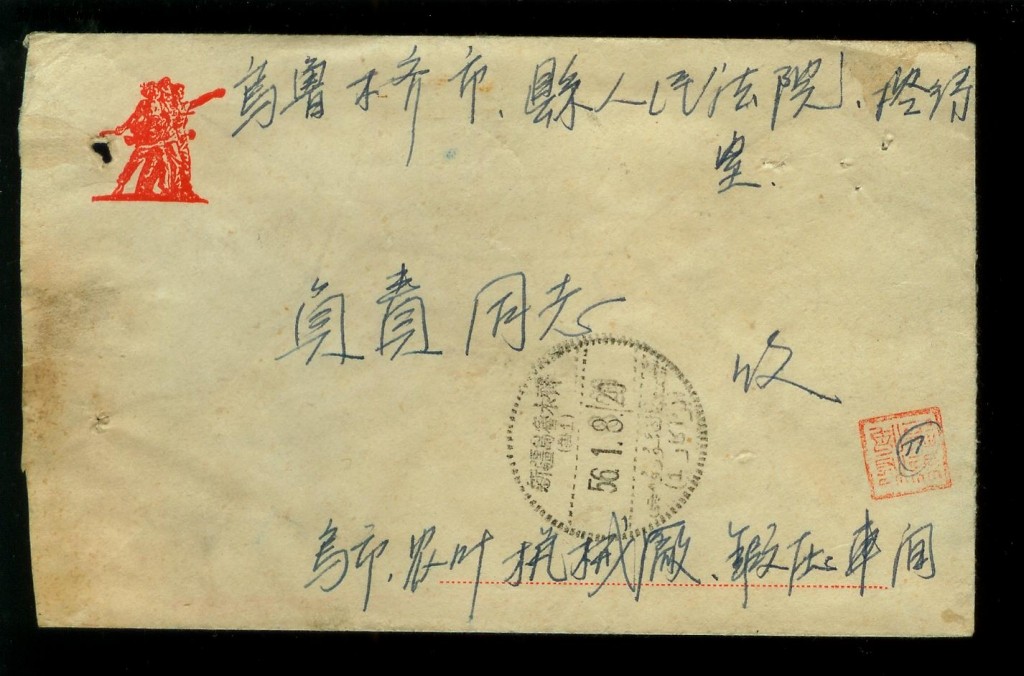 烏魯木齐市、縣人民法院、
室.
負責同志
收
新疆烏魯木齊
56.1.8/20
烏市、农叶机械廠、鍛压車间